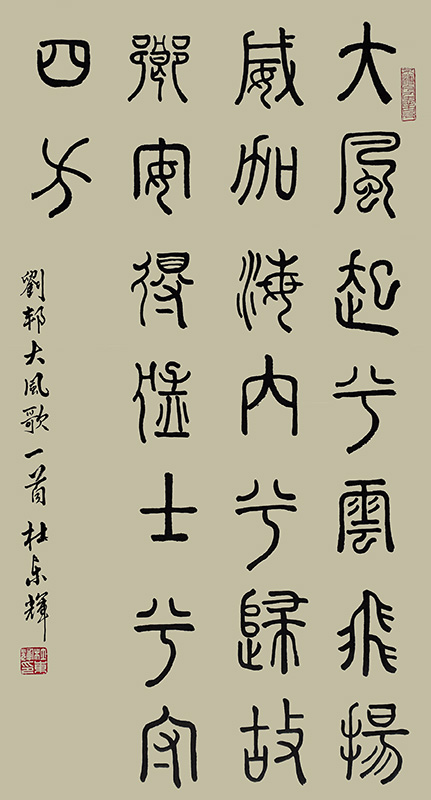 大風起兮雲飛揚
威加海內兮歸故
鄉安得猛士兮守
四方
劉邦大風歌一首 杜东輝